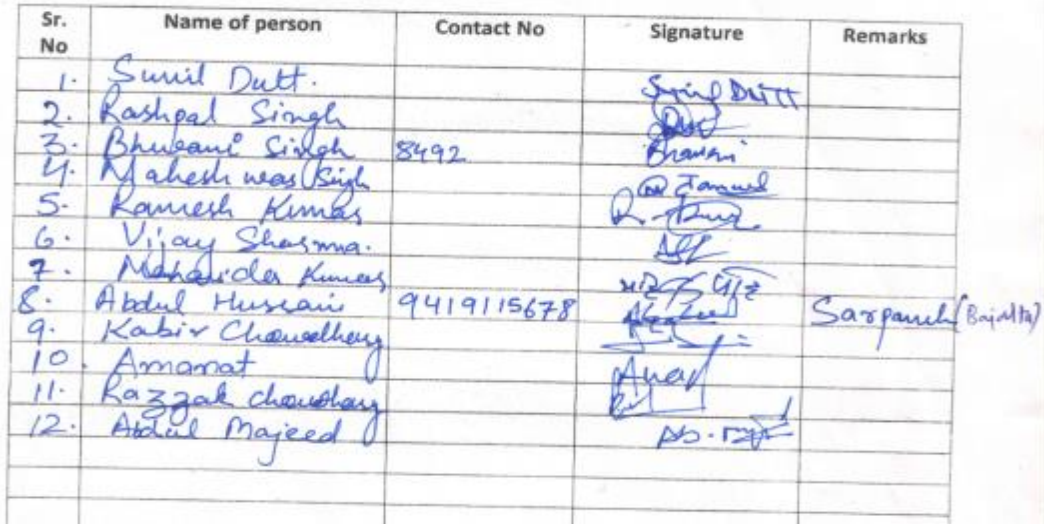 Sr. No Name of person Contact No Signature Remarks
1. Sunil Dutt. Sunil Dutt
2. Rashpal Singh
3. Bhuwani Singh 8492 Bhawani
4. Mahesh Singh
5. Ramesh Kumar
6. Vijay Sharma.
7. Mohander Kumar
8. Abdul Hussain 9419115678 Sarpanch (Bajalta)
9. Kabir Choudhary
10. Amanat
11. Razzak Choudhary
12. Abdul Majeed